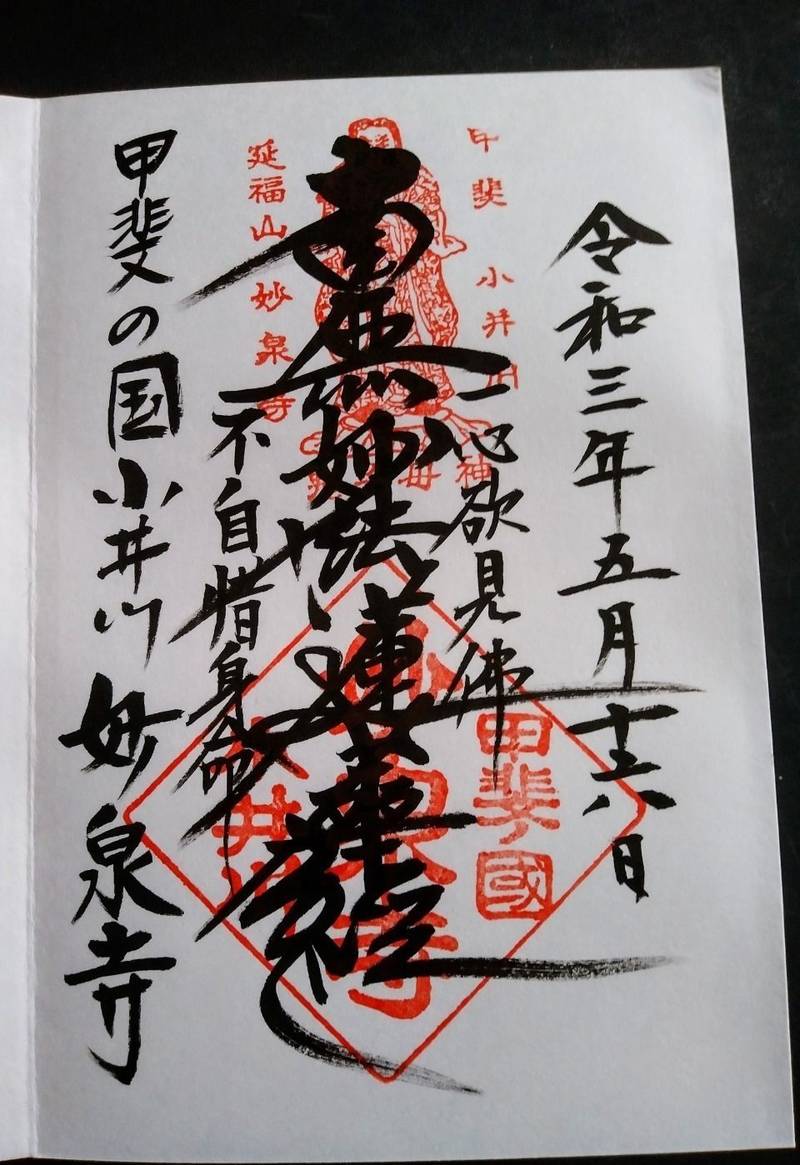 令和三年五月十六日
甲斐 小井川
一心欲見佛
南無妙法蓮華経
不自惜身命
延福山 妙泉寺
甲斐の国小井川 妙泉寺
甲斐國
妙泉寺